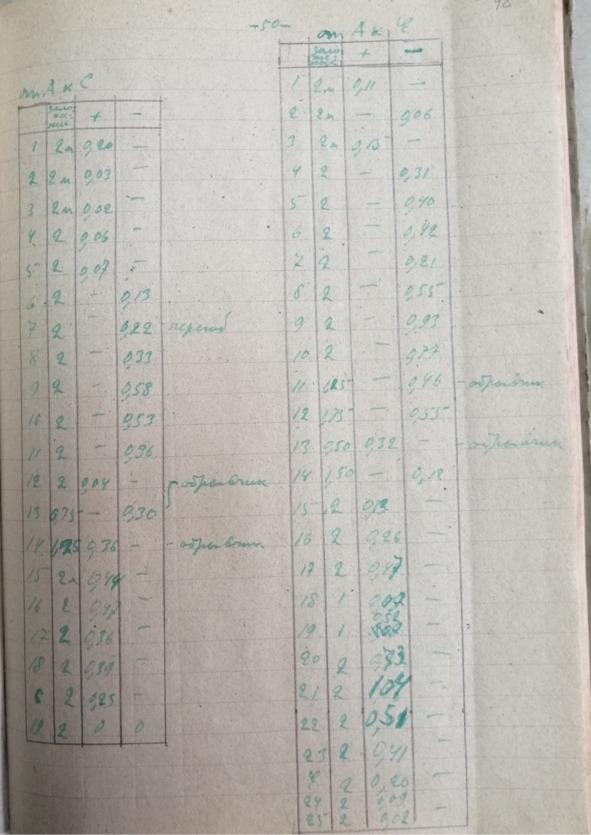 -50-
от А к С
зало
же-
ние + -
1 2м 0,20 -
2 2м 0,03 -
3 2м 0,02 -
4 2 0,06 -
5 2 0,07 -
6 2 - 0,13
7 2 - 0,22 - перегиб
8 2 - 0,33
9 2 - 0,58
10 2 - 0,53
11 2 - 0,36
12 2 0,04 - обрывчик
13 0,75 - 0,30
14 1,25 0,36 - - обрывчик
15 2м 0,44 -
16 2 -
17 2 0,36 -
18 2 0,39 -
С 2 0,25 -
19 2 0 0
от А к Ч
зало
же-
ние + -
1 2м 0,11 -
2 2м - 0,06
3 2м 0,15 -
4 2 - 0,31
5 2 - 0,40
6 2 - 0,42
7 2 - 0,21
8 2 - 0,55
9 2 - 0,93
10 2 - 0,77
11 1,25 - 0,46 - обрывчик
12 1,75 - 0,55
13 0,50 0,32 - - обрывчик
14 1,50 - 0,12
15 2 -
16 2 0,26 -
17 2 0,47 -
18 1 -
19 1 0,52 -
20 2 -
21 2 1,04 -
22 2 0,51 -
23 2 0,41 -
Ч 2 0,20 -
24 2 0,09 -
25 2 0,02 -